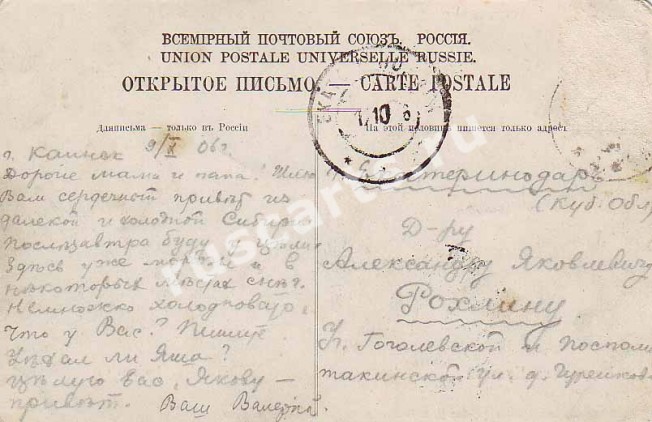 ВСЕМІРНЫЙ ПОЧТОВЫЙ СОЮЗЪ. РОССІЯ.
UNION POSTALE UNIVERSELLE RUSSIE.
ОТКРЫТОЕ ПИСЬМО — CARTE POSTALE
Для письма — только въ Россіи
На этой половинѣ пишется только адресъ
г. Каинск 9/X 06 г
Дорогие мама и папа! Шлю
Вам сердечный привѣт из
далекой и холодной Сибири
Послѣзавтра буду у
Здѣсь уже и в
нѣкоторых мѣстах снѣг.
Немножко холодновато.
Что у Вас? Пишите
Уѣхал ли Яша?
Цѣлую Вас, Якову —
привѣт. Ваш Валерий
Екатеринодаръ
(Куб. Обл)
Д-ру
Александру Яковлевичу
Рохлину
Гоголевской и Посполи-
такинской ул. д.
1.10.6
rusfarts.ru